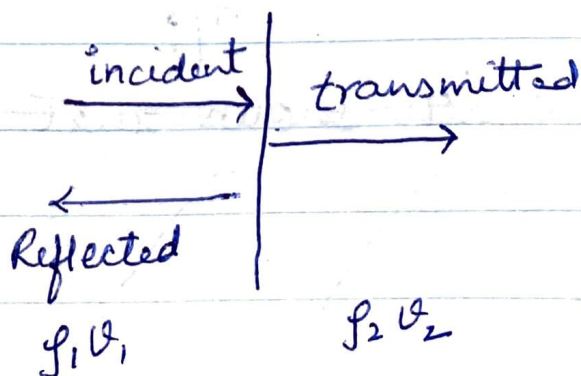 incident
transmitted
Reflected
ρ₁ϑ₁
ρ₂ϑ₂